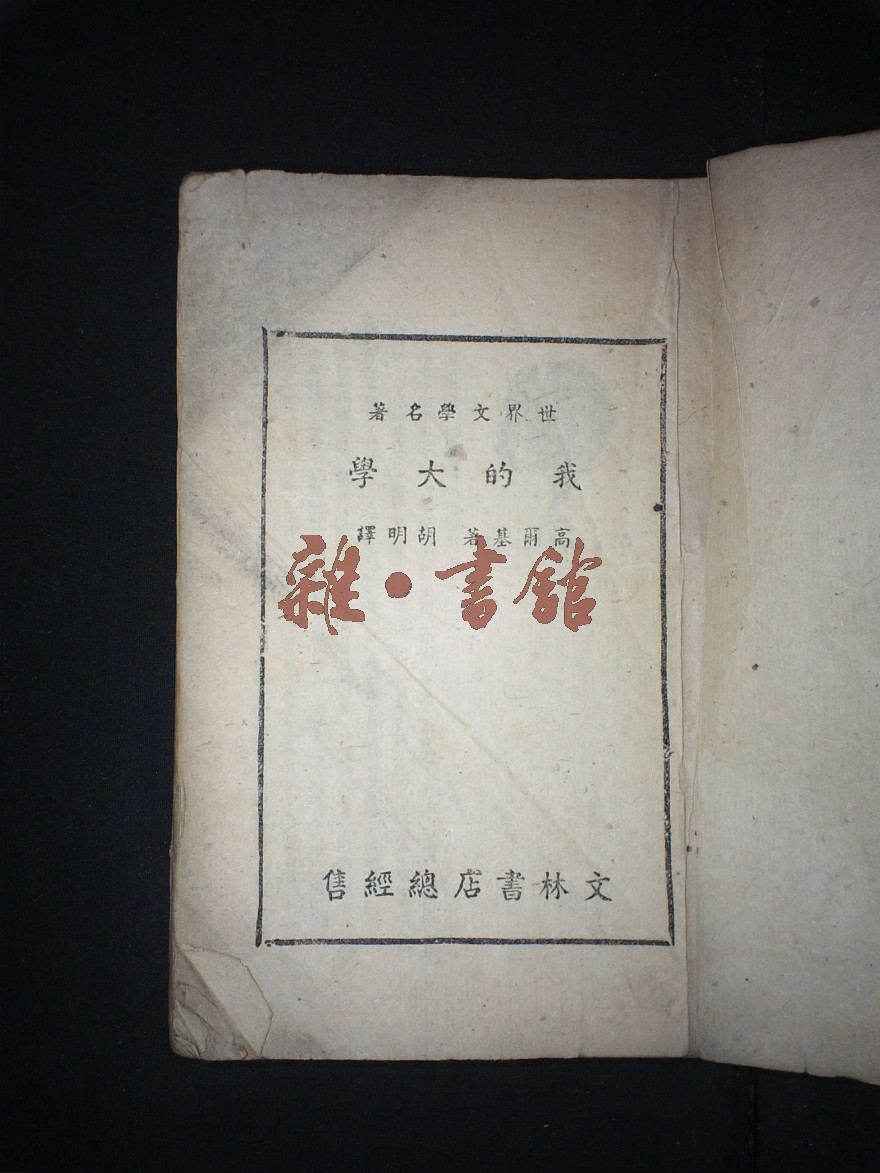 世界文學名著
我的大學
高爾基著 胡明譯
雜·書館
文林書店總經售